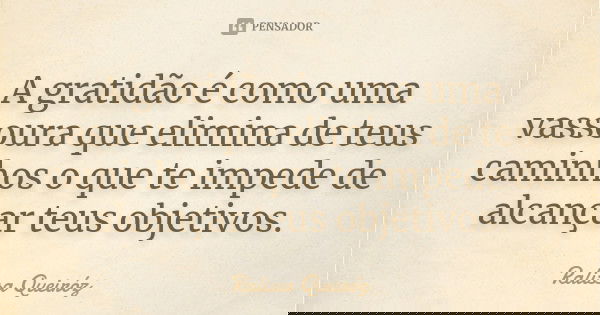 PENSADOR
A gratidão é como uma
vassoura que elimina de teus
caminhos o que te impede de
alcançar teus objetivos.
Ralissa Queiróz